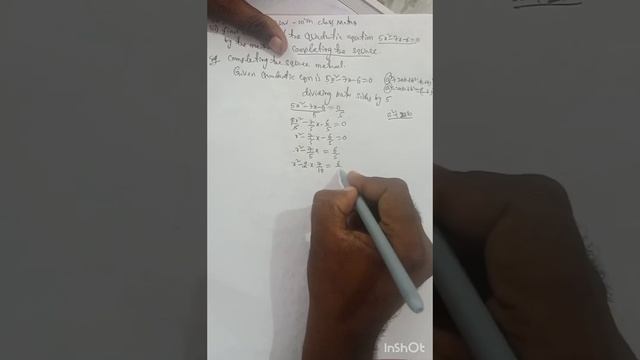 class maths
the Quadratic equation 5x²-7x-6=0
by the completing the square
completing the square method:
Given Quadratic eqn is 5x²-7x-6=0
dividing both sides by 5
5x²-7x-6/5 = 0/5
5x²/5 - 7/5x - 6/5 = 0
x² - 7/5x - 6/5 = 0
x² - 7/5x = 6/5
x² - 2·x 7/10 = 6
InShOt